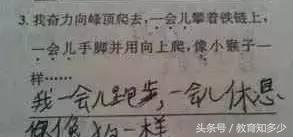 3. 我奋力向峰顶爬去,一会儿攀着铁链上,
一会儿手脚并用向上爬,像小猴子一
样……
我一会儿跑步,一会儿休息
像狗一样
头条号/教育知多少